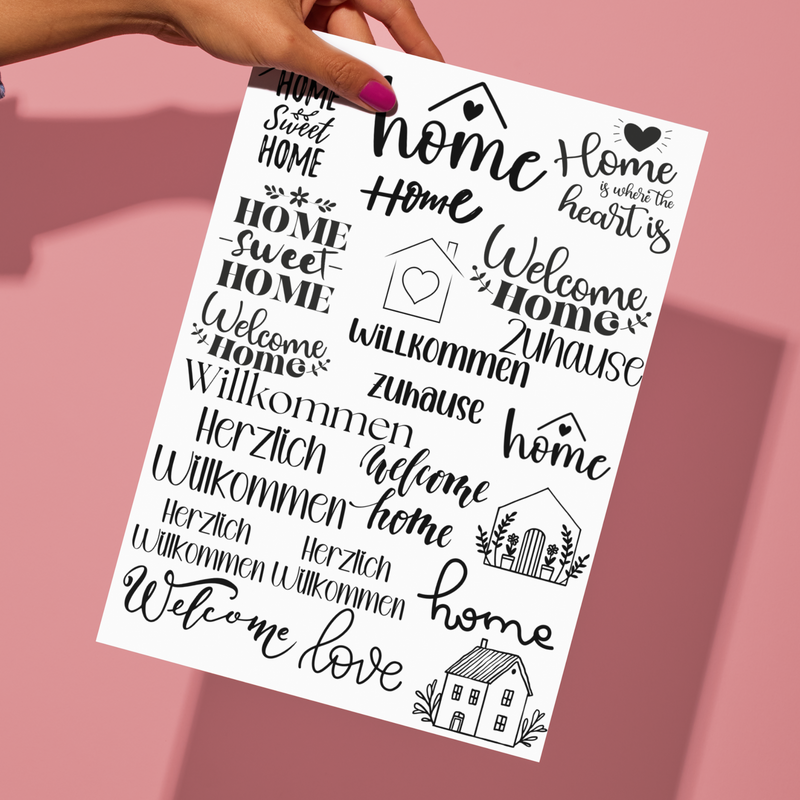 HOME
Sweet
HOME
home
Home
is where the
heart is
Home
HOME
sweet
HOME
Welcome
Home
Willkommen
Zuhause
Welcome
Home
Zuhause
Willkommen
home
Herzlich
Willkommen
Welcome
home
Herzlich
Willkommen
Herzlich
Willkommen
home
Welcome
love